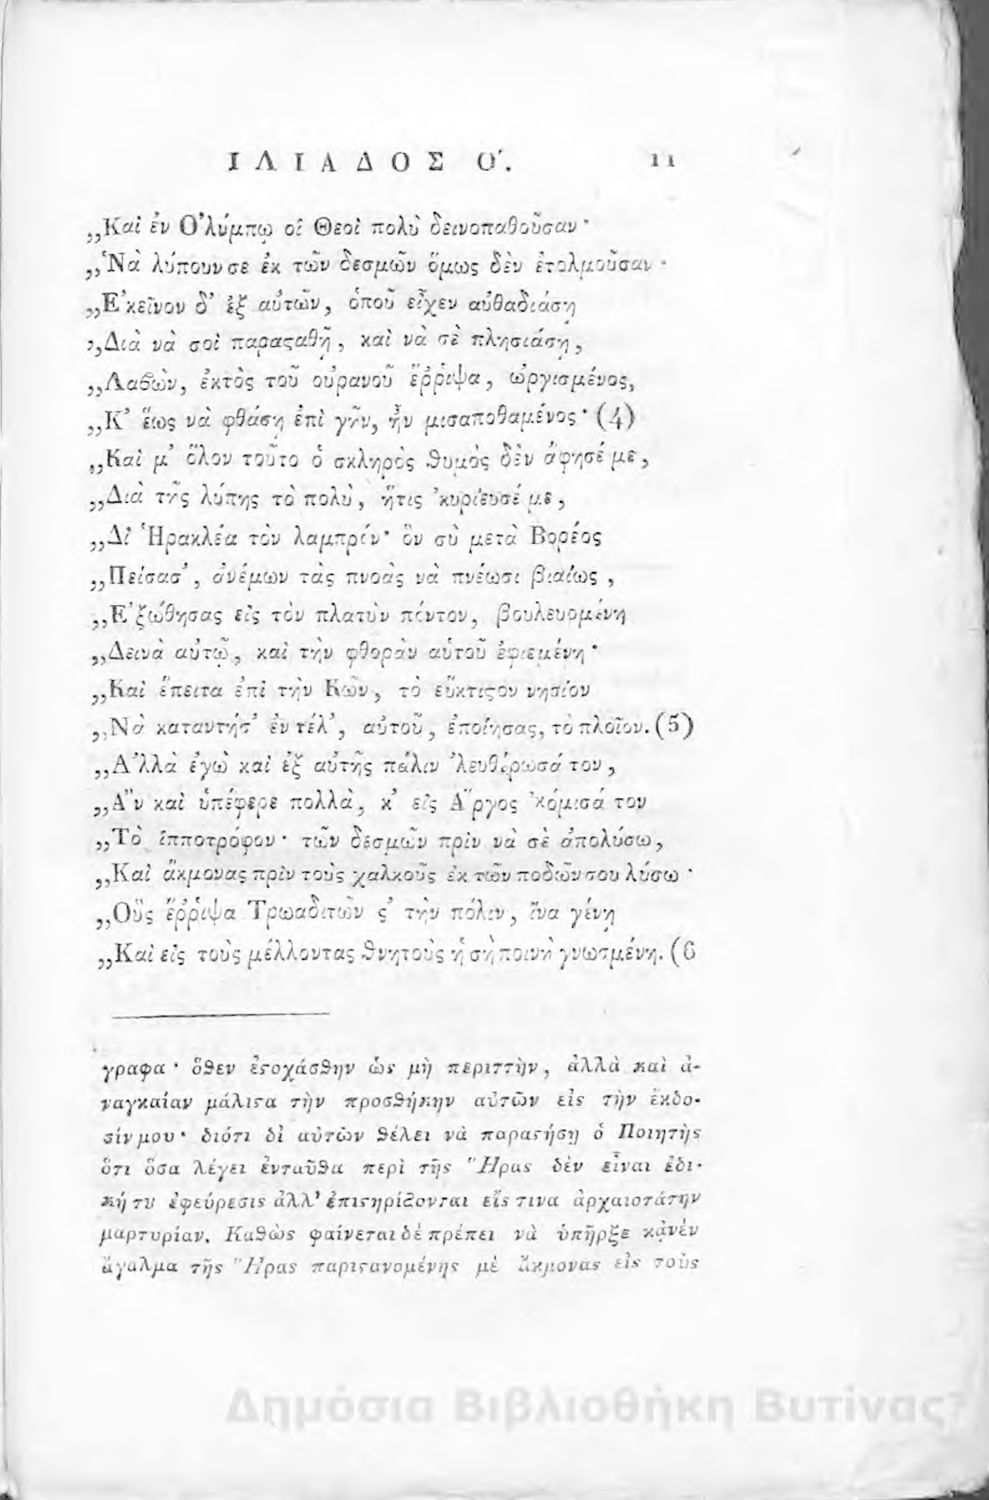 ΙΛΙΑΔΟΣ Ο'. 11
„Καὶ ἐν Ὀλύμπῳ οἱ Θεοὶ πολὺ δεινοπαθοῦσαν·
„Νὰ λύπουν σε ἐκ τῶν δεσμῶν ὅμως δὲν ἐτολμοῦσαν·
„Ἐκεῖνον δ' ἐξ αὐτῶν, ὁποῦ εἶχεν αὐθαδιάσῃ
„Διὰ νὰ σοὶ παραϛαθῇ, καὶ νὰ σὲ πλησιάσῃ,
„Λαβὼν, ἐκτὸς τοῦ οὐρανοῦ ἔῤῥιψα, ὠργισμένος,
„Κ' ἕως νὰ φθάσῃ ἐπὶ γῆν, ἦν μισαποθαμένος· (4)
„Καὶ μ' ὅλον τοῦτο ὁ σκληρὸς ϑυμὸς δὲν ἄφησέ με,
„Διὰ τῆς λύπης τὸ πολὺ, ἥτις 'κυρίευσέ με,
„Δι' Ἡρακλέα τὸν λαμπρόν· ὃν σὺ μετὰ Βορέος
„Πείσασ', ἀνέμων τὰς πνοὰς νὰ πνέωσι βιαίως,
„Ἐξώθησας εἰς τὸν πλατὺν πόντον, βουλευομένη
„Δεινὰ αὐτῷ, καὶ τὴν φθορὰν αὐτοῦ ἐφιεμένη·
„Καὶ ἔπειτα ἐπὶ τὴν Κῶν, τὸ εὔκτιϛον νησίον
„Νὰ καταντήσ' ἐν τέλ', αὐτοῦ, ἐποίησας, τὸ πλοῖον. (5)
„Ἀλλὰ ἐγὼ καὶ ἐξ αὐτῆς πάλιν 'λευθέρωσά τον,
„Ἂν καὶ ὑπέφερε πολλὰ, κ' εἰς Ἄργος 'κόμισά τον
„Τὸ ἱπποτρόφον· τῶν δεσμῶν πρὶν νὰ σὲ ἀπολύσω,
„Καὶ ἄκμονας πρὶν τοὺς χαλκοῦς ἐκ τῶν ποδῶν σου λύσω·
„Οὓς ἔῤῥιψα Τρωαδιτῶν ϛ' τὴν πόλιν, ἵνα γένῃ
„Καὶ εἰς τοὺς μέλλοντας ϑνητοὺς ἡ σὴ ποινὴ γνωσμένη. (6
γραφα· ὅϑεν ἐϛοχάσϑην ὡς μὴ περιττὴν, ἀλλὰ καὶ ἀ-
ναγκαίαν μάλιϛα τὴν προσϑήκην αὐτῶν εἰς τὴν ἔκδο-
σίν μου· διότι δι' αὐτῶν ϑέλει νὰ παραϛήσῃ ὁ Ποιητὴς
ὅτι ὅσα λέγει ἐνταῦϑα περὶ τῆς Ἥρας δὲν εἶναι ἐδι-
κή τȣ ἐφεύρεσις ἀλλ' ἐπιϛηρίζονται εἴς τινα ἀρχαιοτάτην
μαρτυρίαν. Καϑὼς φαίνεται δὲ πρέπει νὰ ὑπῆρξε κἀνέν
ἄγαλμα τῆς Ἥρας παριϛανομένης μὲ ἄκμονας εἰς τοὺς
Δημόσια Βιβλιοθήκη Βυτίνας